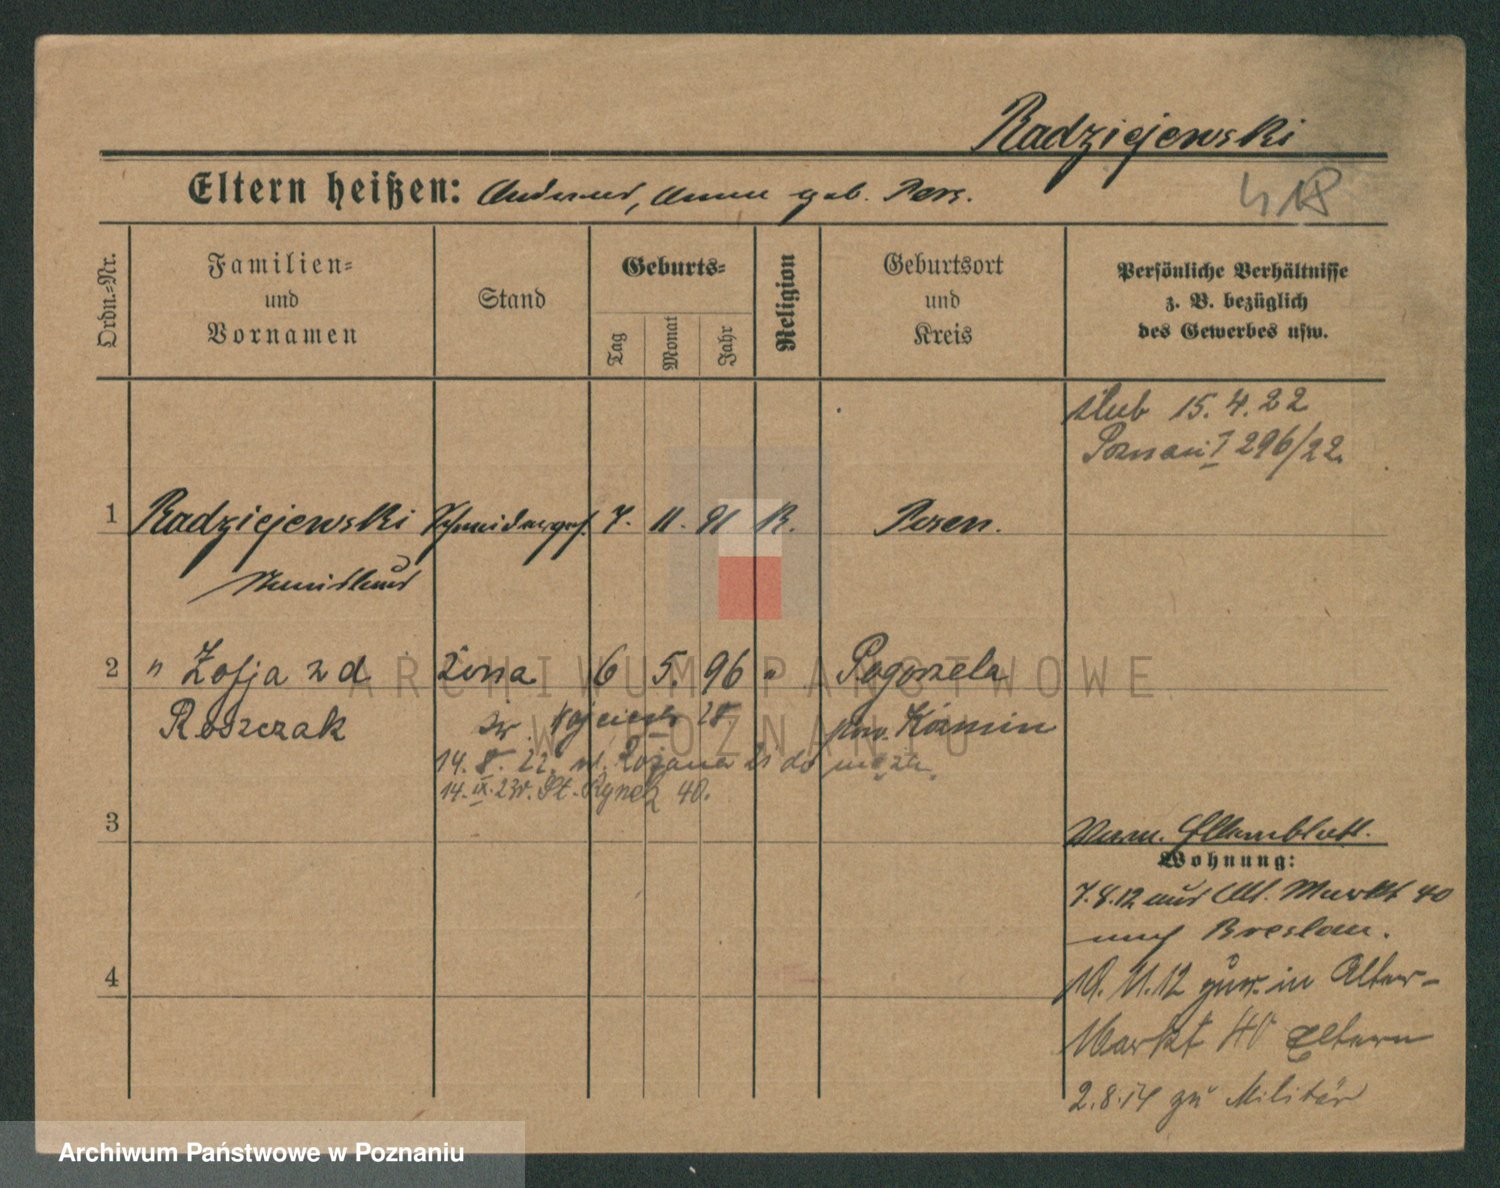 Radziejewski
Eltern heißen: Andreas, Anna geb.
418
Ordn.-Nr.
Familien-
und
Vornamen
Stand
Geburts-
Tag
Monat
Jahr
Religion
Geburtsort
und
Kreis
Persönliche Verhältnisse
z. B. bezüglich
des Gewerbes usw.
ślub 15.4.22
Poznań I 296/22
1 Radziejewski Schneiderges. 7. 11. 91 K. Posen.
Stanislaus
2 " Zofja z d. żona 6 5. 96 " Pogorzela
Roszczak pow. Koźmin
św. Wojciech 28
14. 8. 22. do męża
14. IX. 23r. St. Rynek 40.
3
4
Verm. Elternblatt.
Wohnung:
7.8.12 aus Alt. Markt 40
nach Breslau.
19.11.12 zur. in Alter-
Markt 40 Eltern
2.8.14 zu Militär
ARCHIWUM PAŃSTWOWE
W POZNANIU
Archiwum Państwowe w Poznaniu